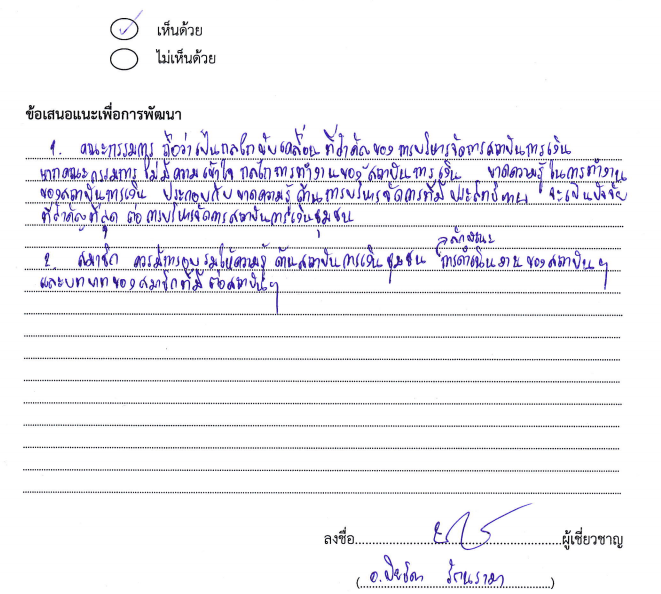 เห็นด้วย
ไม่เห็นด้วย
ข้อเสนอแนะเพื่อการพัฒนา
1. คณะกรรมการ ถือว่าเป็นกลไกขับเคลื่อน ที่สำคัญของ การบริหารจัดการสถาบันการเงิน
หากคณะกรรมการ ไม่มีความเข้าใจ กลไกการทำงานของสถาบันการเงิน ขาดความรู้ในการทำงาน
ของสถาบันการเงิน ประกอบกับ ขาดความรู้ ด้านการบริหารจัดการที่มีประสิทธิภาพ จะเป็นปัจจัย
ที่สำคัญที่สุด ต่อการบริหารจัดการสถาบันการเงินชุมชน
ลักษณะ
2. สมาชิก ควรมีการอบรมให้ความรู้ ด้านสถาบันการเงินชุมชน การดำเนินงานของสถาบันฯ
และบทบาทของสมาชิกที่มีต่อสถาบันฯ
ลงชื่อ ผู้เชี่ยวชาญ
(อ.ปิยธิดา)